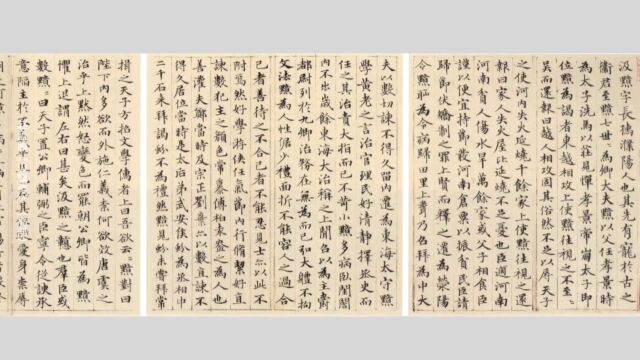 汲黯字長孺濮陽人也其先有寵於古之
衛君至黯七世世為卿大夫黯以父任孝景時
為太子洗馬以莊見憚孝景帝崩太子即
位黯為謁者東越相攻上使黯往視之不至
吳而還報曰越人相攻固其俗然不足以辱天子
之使河內失火延燒千餘家上使黯往視之還
報曰家人失火屋比延燒不足憂也臣過河南
河南貧人傷水旱萬餘家或父子相食臣
謹以便宜持節發河南倉粟以振貧民臣請
歸節伏矯制之罪上賢而釋之遷為滎陽
令黯恥為令病歸田里上聞乃召拜為中大
夫以數切諫不得久留內遷為東海太守黯
學黃老之言治官理民好清靜擇丞史而
任之其治責大指而已不苛小黯多病臥閨閤
內不出歲餘東海大治稱之上聞召以為主爵
都尉列於九卿治務在無為而已弘大體不拘
文法黯為人性倨少禮面折不能容人之過合
己者善待之不合己者不能忍見士亦以此不
附焉然好學游俠任氣節內行脩絜好直
諫數犯主之顏色常慕傅柏袁盎之為人也
善灌夫鄭當時及宗正劉棄亦以數直諫不
得久居位當時是太后弟武安侯蚡為丞相中
二千石來拜謁蚡不為禮然黯見蚡未嘗拜常
揖之天子方招文學儒者上曰吾欲云云黯對曰
陛下內多欲而外施仁義奈何欲效唐虞之
治乎上默然怒變色而罷朝公卿皆為黯
懼上退謂左右曰甚矣汲黯之戇也群臣或
數黯黯曰天子置公卿輔弼之臣寧令從諛承
意陷主於不義乎且已在其位縱愛身奈辱